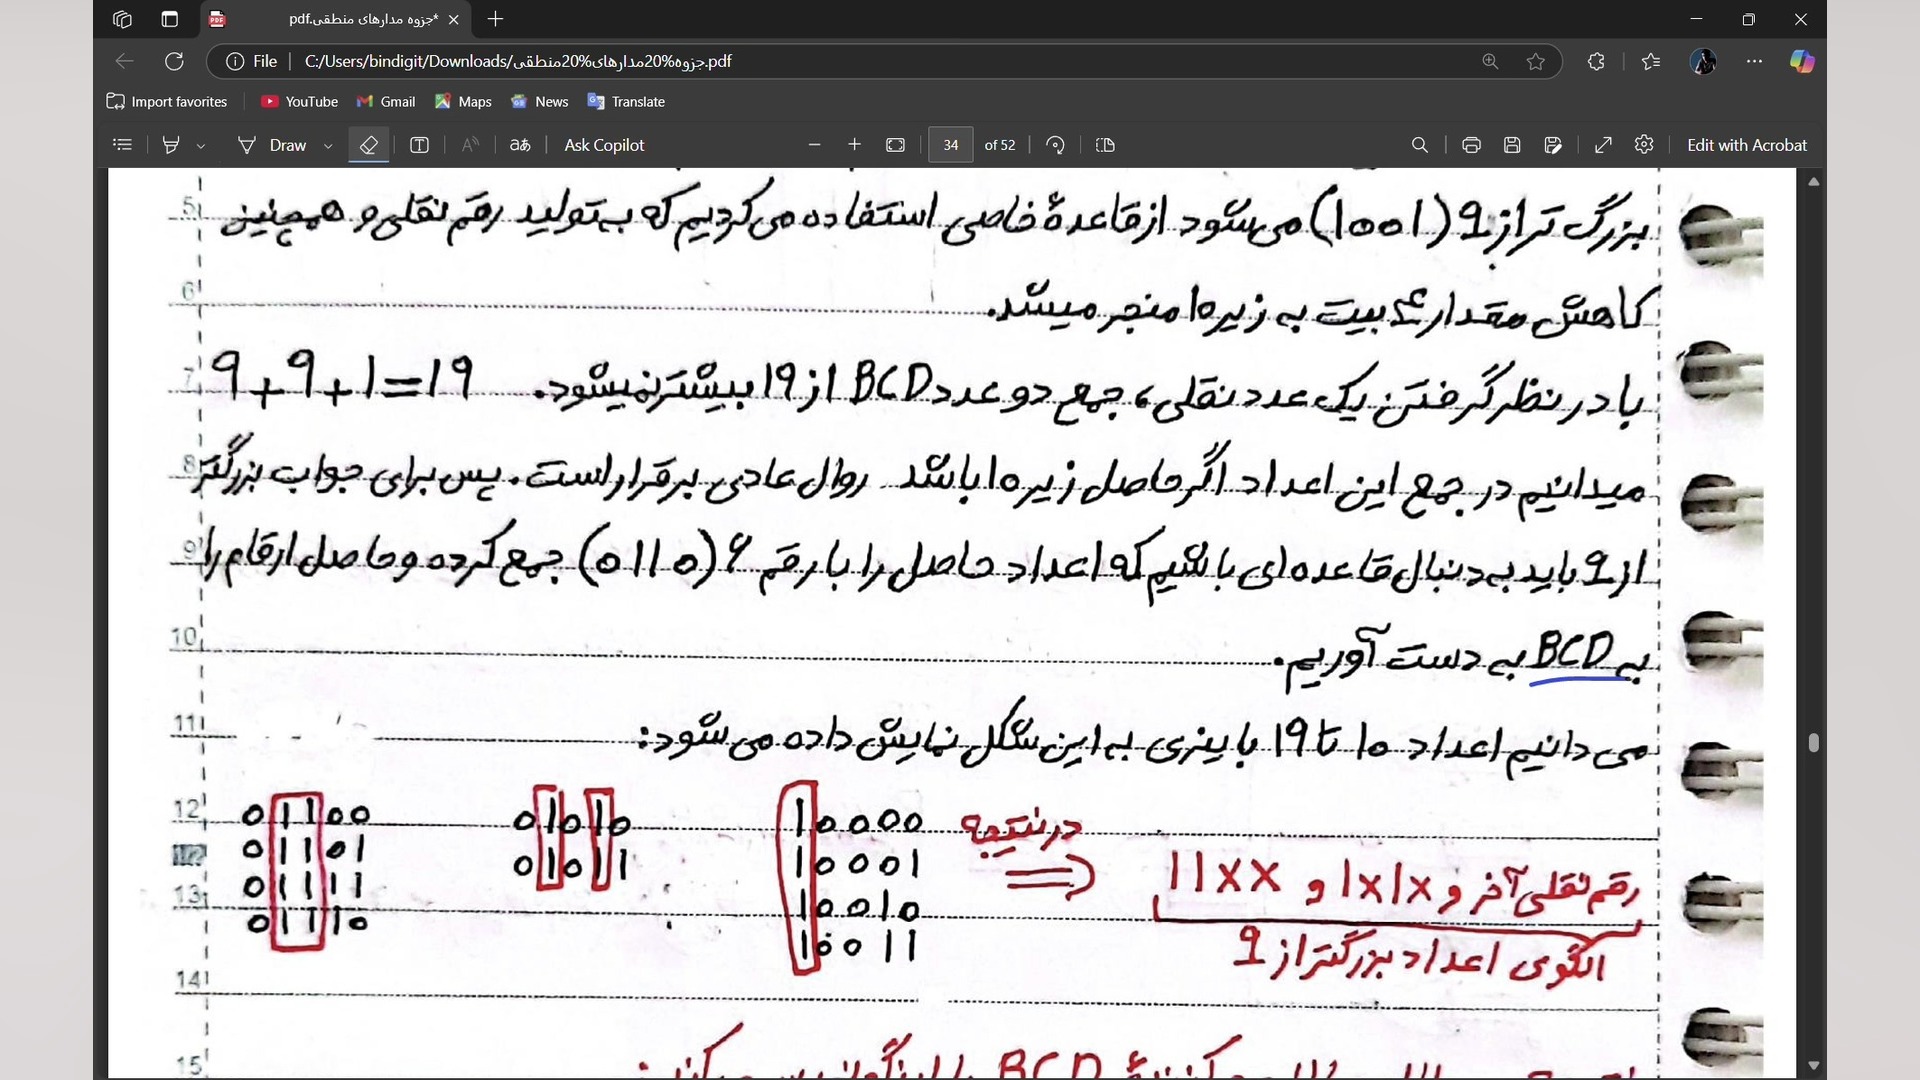 جزوه مدارهای منطقی.pdf*
File
C:/Users/bindigit/Downloads/جزوه%20مدارهای%20منطقی.pdf
Import favorites
YouTube
Gmail
Maps
News
Translate
Draw
aあ
Ask Copilot
34 of 52
Edit with Acrobat
5
بزرگ تر از 9 (1001) می‌شود از قاعدهٔ خاصی استفاده می‌کردیم که به تولید رقم نقلی و همچنین
6
کاهش مقدار ۴ بیت به زیر ۱۰ منجر میشد.
7
با در نظر گرفتن یک عدد نقلی، جمع دو عدد BCD از 19 بیشتر نمیشود. 9+9+1=19
8
میدانیم در جمع این اعداد اگر حاصل زیر ۱۰ باشد روال عادی برقرار است. پس برای جواب بزرگتر
9
از 9 باید به دنبال قاعده‌ای باشیم که اعداد حاصل را با رقم ۶ (0110) جمع کرده و حاصل ارقام را
10
به BCD به دست آوریم.
11
می دانیم اعداد ۱۰ تا ۱۹ باینری به این شکل نمایش داده می شود:
12
01100 01010 10000 در نتیجه
01101 01011 10001 رقم نقلی آخر و 1x1x و 11xx
13
01111 10010
01110 10011 الگوی اعداد بزرگتر از 9
14
15
BCD